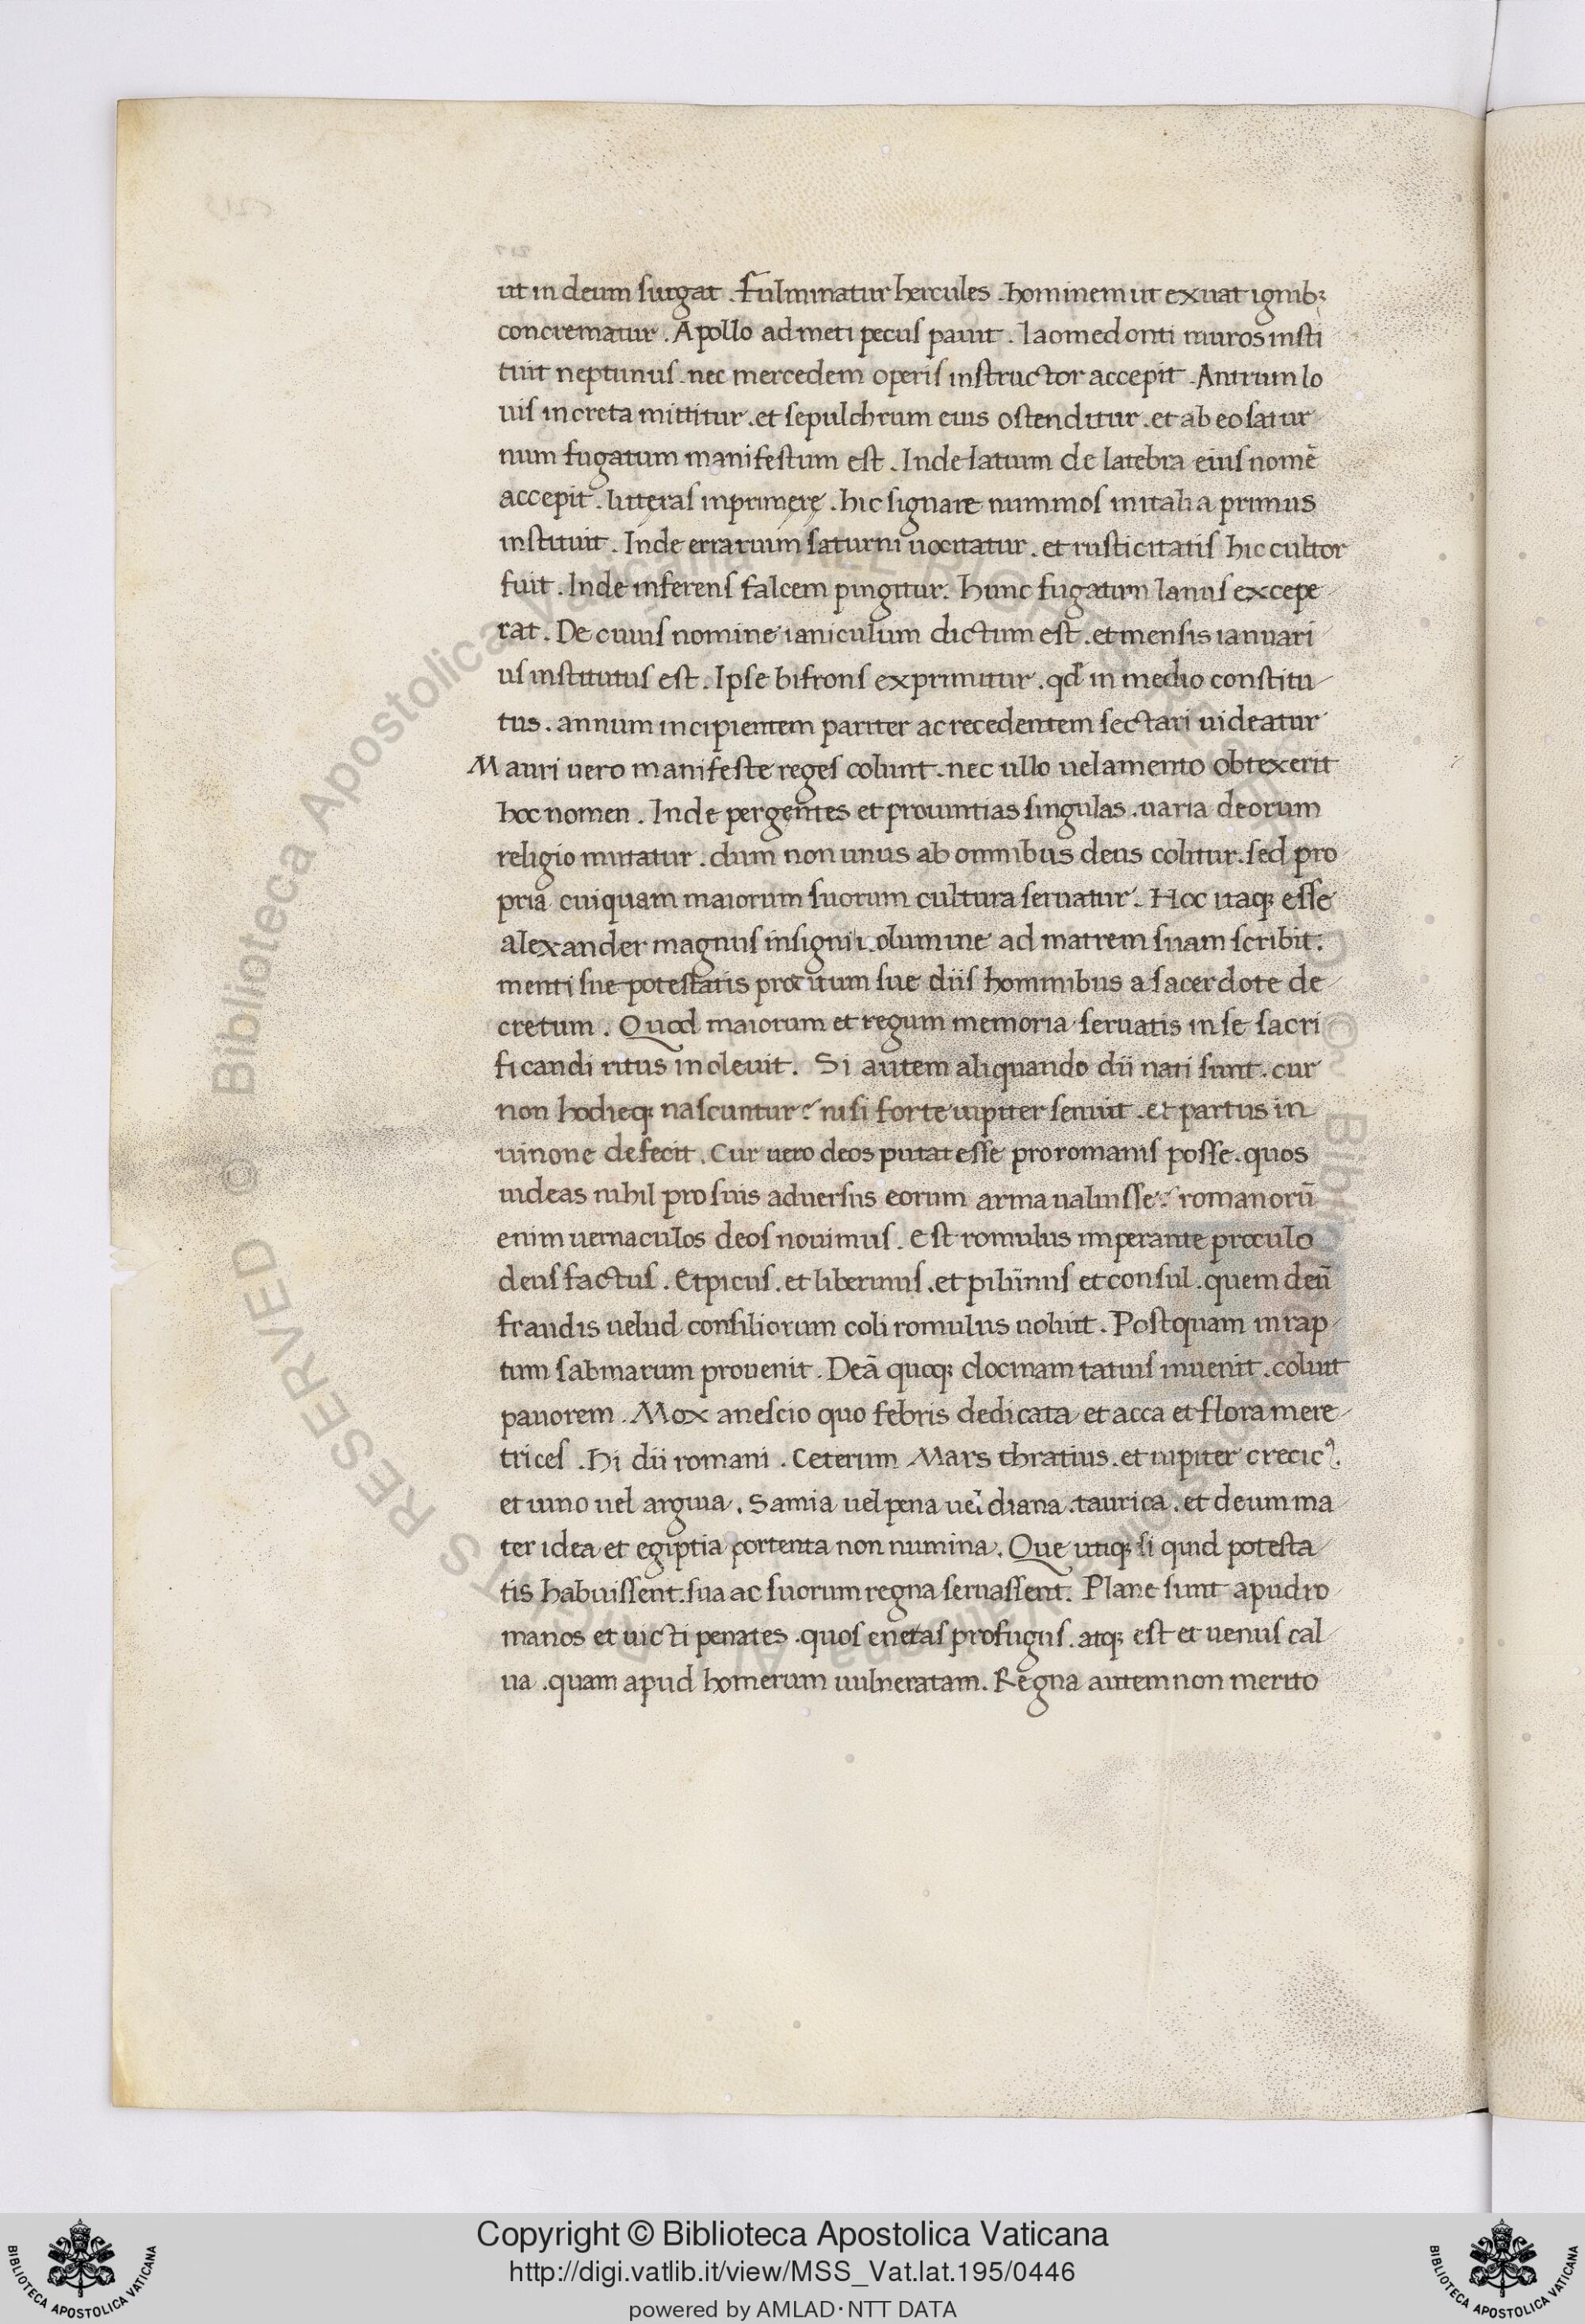 ut in deum surgat . Fulminatur hercules . hominem ut exuat ignib;
concrematur . Apollo admeti pecus pauit . laomedonti muros insti
tuit neptunus . nec mercedem operis instructor accepit . Antrum Io
uis in creta mittitur . et sepulchrum eius ostenditur . et ab eo satur
num fugatum manifestum est . Inde latium de latebra eius nomē
accepit . litteras inprimere . hic signare nummos in italia primus
instituit . Inde errarium saturni uocitatur . et rusticitatis hic cultor
fuit . Inde inferens falcem pingitur . hunc fugatum Ianus excepe
rat . De cuius nomine ianiculum dictum est . et mensis ianuari
us institutus est . Ipse bifrons exprimitur . qđ in medio constitu
tus . annum incipientem pariter ac recedentem sectari uideatur
Mauri uero manifeste reges colunt . nec ullo uelamento obtexerit
hoc nomen . Inde pergentes et prouintias singulas . uaria deorum
religio mutatur . dum non unus ab omnibus deus colitur . sed pro
pria cuiquam maiorum suorum cultura seruatur . Hoc itaq; esse
alexander magnus insigni uolumine ad matrem suam scribit .
menti sue potestatis proditum sue diis hominibus a sacerdote de
cretum . Quod maiorum et regum memoria seruatis in se sacri
ficandi ritus inoleuit . Si autem aliquando dii nati sunt . cur
non hodieq; nascuntur ? nisi forte iupiter senuit . et partus in
iunone defecit . Cur uero deos putat esse pro romanis posse . quos
uideas nihil pro suis aduersus eorum arma ualuisse ? romanorū
enim uernaculos deos nouimus . Est romulus imperante proculo
deus factus . Et picus . et liberinus . et pilūnus et consul . quem deū
fraudis uelud consiliorum coli romulus uoluit . Postquam in rap
tum sabinarum prouenit . Deā quoq; clocinam tatius inuenit . coluit
pauorem . Mox a nescio quo febris dedicata et acca et flora mere
trices . Hi dii romani . Ceterum Mars thratius . et iupiter crecic⁹ .
et iuno uel argiua . Samia uel pena uel diana . taurica . et deum ma
ter idea et egiptia portenta non numina . Que utiq; si quid potesta
tis habuissent . sua ac suorum regna seruassent . Plane sunt apud ro
manos et uicti penates . quos enetas profugus . atq; est et uenus cal
ua . quam apud homerum uulneratam . Regna autem non merito
Copyright © Biblioteca Apostolica Vaticana
http://digi.vatlib.it/view/MSS_Vat.lat.195/0446
powered by AMLAD·NTT DATA